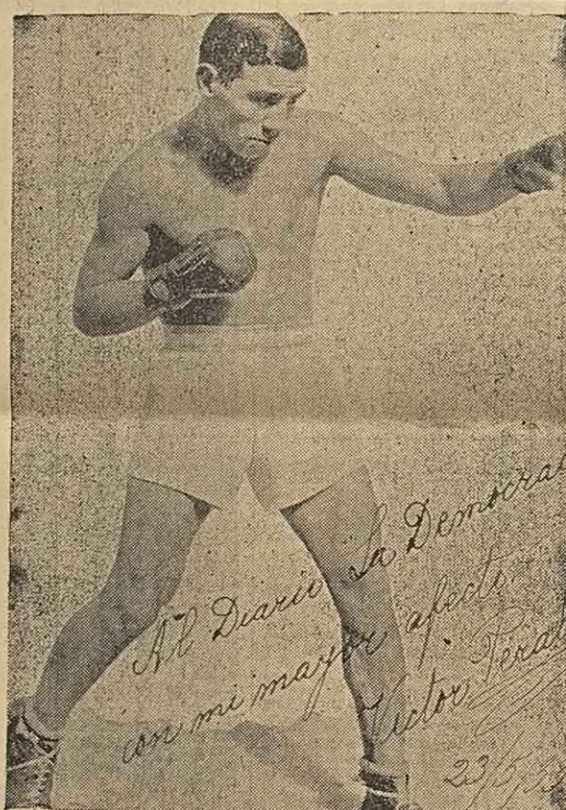 Al Diario La Democra
con mi mayor afecto
Victor Peral
23/5/